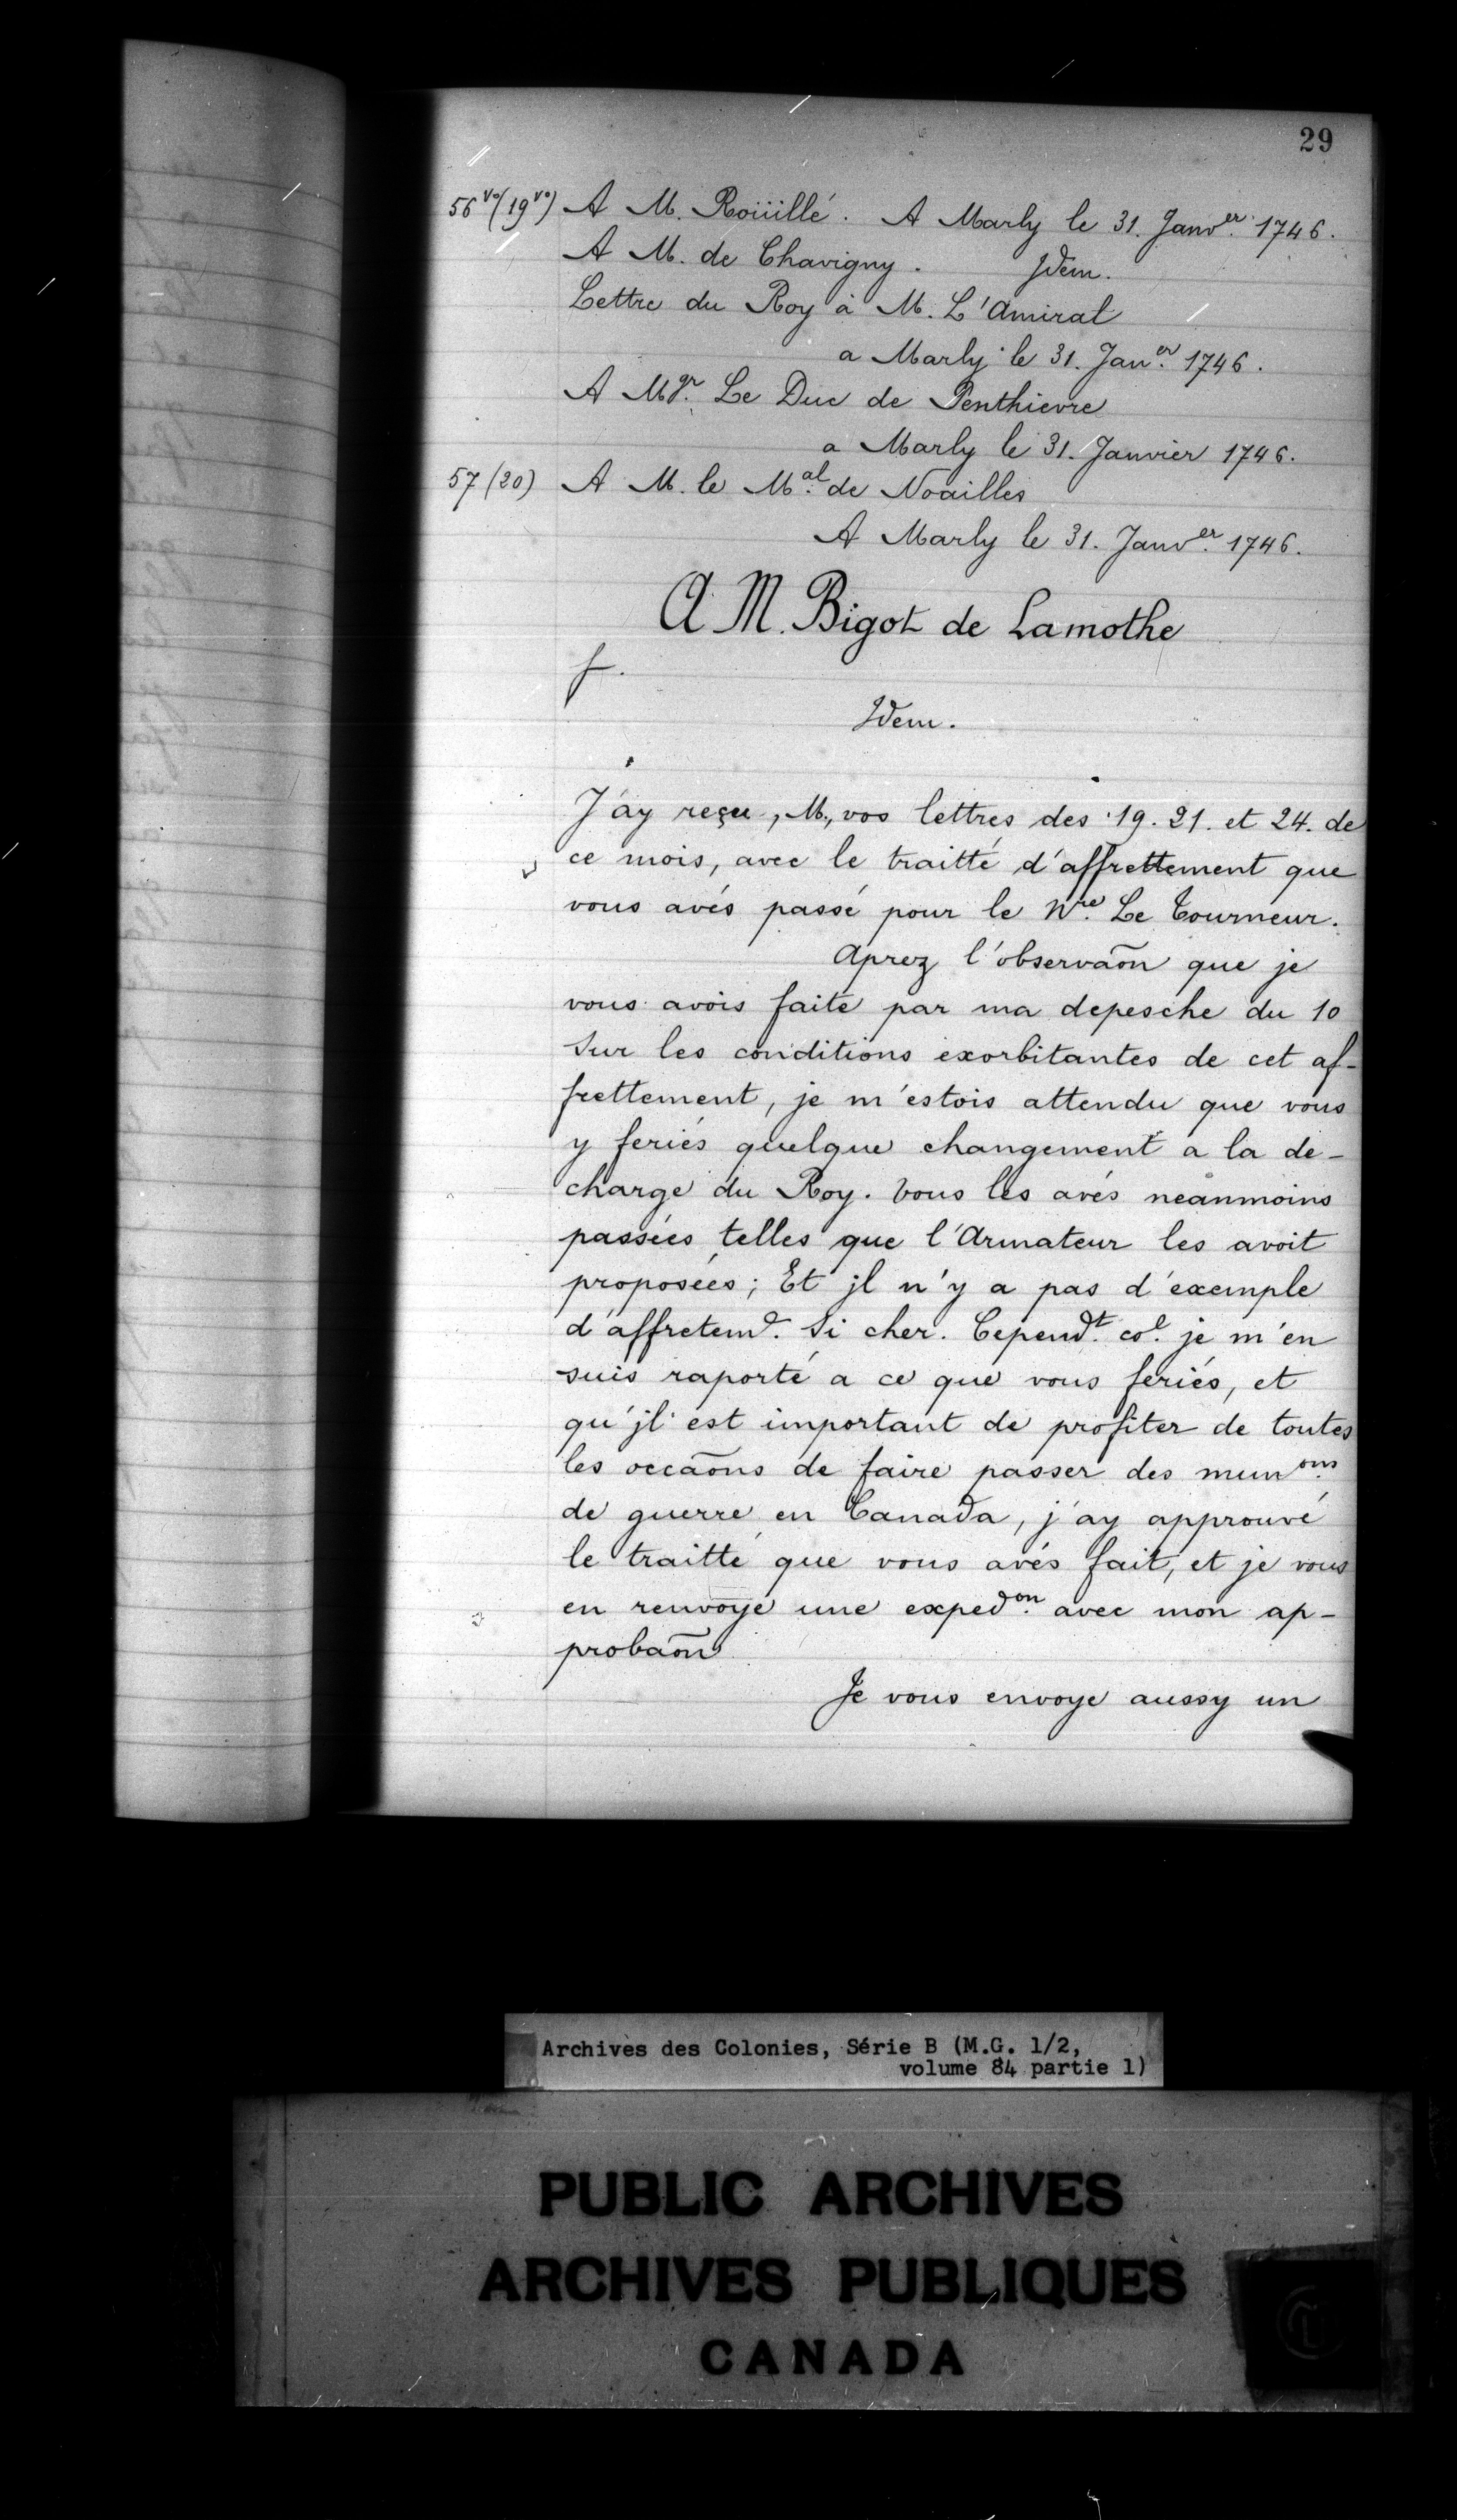 29
56 vo (19 vo) A M. Roüillé. A Marly le 31. Janver. 1746.
A M. de Chavigny. Jdem.
Lettre du Roy à M. L'Amiral
a Marly le 31. Janer. 1746.
A Mgr. Le Duc de Penthievre
a Marly le 31. Janvier 1746.
57 (20) A M. le Mal. de Noailles
A Marly le 31. Janver. 1746.
A M. Bigot de Lamothe
f.
Jdem.
J'ay reçu, M., vos lettres des 19. 21. et 24. de
ce mois, avec le traitté d'affrettement que
vous avés passé pour le Nre. Le Tourneur.
Aprez l'observaõn que je
vous avois faite par ma depesche du 10
sur les conditions exorbitantes de cet af-
frettement, je m'estois attendu que vous
y feriés quelque changement a la de-
charge du Roy. Vous les avés neanmoins
passées telles que l'Armateur les avoit
proposées; Et jl n'y a pas d'exemple
d'affretemt. si cher. Cependt. coe. je m'en
suis raporté a ce que vous feriés, et
qu'jl est important de profiter de toutes
les occaõns de faire passer des munons.
de guerre en Canada, j'ay approuvé
le traitté que vous avés fait, et je vous
en renvoye une expedon. avec mon ap-
probaõn
Je vous envoye aussy un
Archives des Colonies, Série B (M.G. 1/2,
volume 84 partie 1)
PUBLIC ARCHIVES
ARCHIVES PUBLIQUES
CANADA